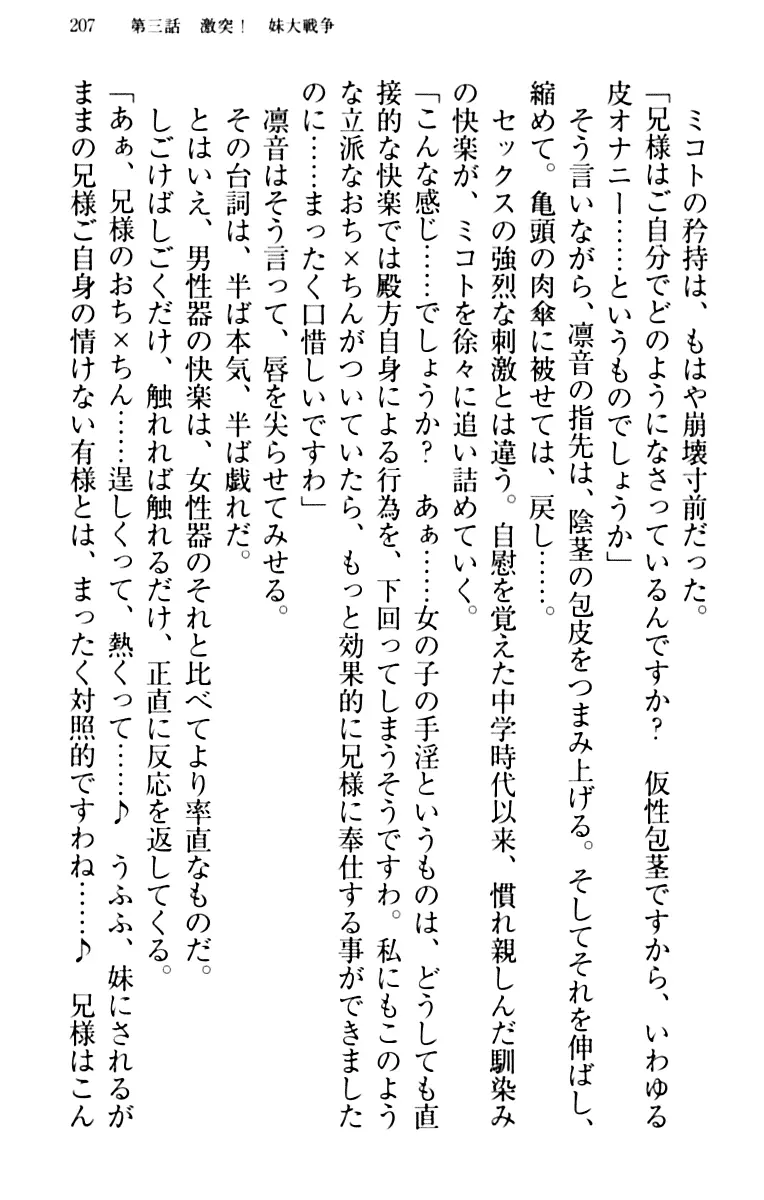 207　第三話　激突！　妹大戦争
ミコトの矜持は、もはや崩壊寸前だった。
「兄様はご自分でどのようになさっているんですか？　仮性包茎ですから、いわゆる
皮オナニー……というものでしょうか」
そう言いながら、凛音の指先は、陰茎の包皮をつまみ上げる。そしてそれを伸ばし、
縮めて。亀頭の肉傘に被せては、戻し……。
セックスの強烈な刺激とは違う。自慰を覚えた中学時代以来、慣れ親しんだ馴染み
の快楽が、ミコトを徐々に追い詰めていく。
「こんな感じ……でしょうか？　あぁ……女の子の手淫というものは、どうしても直
接的な快楽では殿方自身による行為を、下回ってしまうそうですわ。私にもこのよう
な立派なおち×ちんがついていたら、もっと効果的に兄様に奉仕する事ができました
のに……まったく口惜しいですわ」
凛音はそう言って、唇を尖らせてみせる。
その台詞は、半ば本気、半ば戯れだ。
とはいえ、男性器の快楽は、女性器のそれと比べてより率直なものだ。
しごけばしごくだけ、触れれば触れるだけ、正直に反応を返してくる。
「あぁ、兄様のおち×ちん……逞しくって、熱くって……♪　うふふ、妹にされるが
ままの兄様ご自身の情けない有様とは、まったく対照的ですわね……♪　兄様はこん